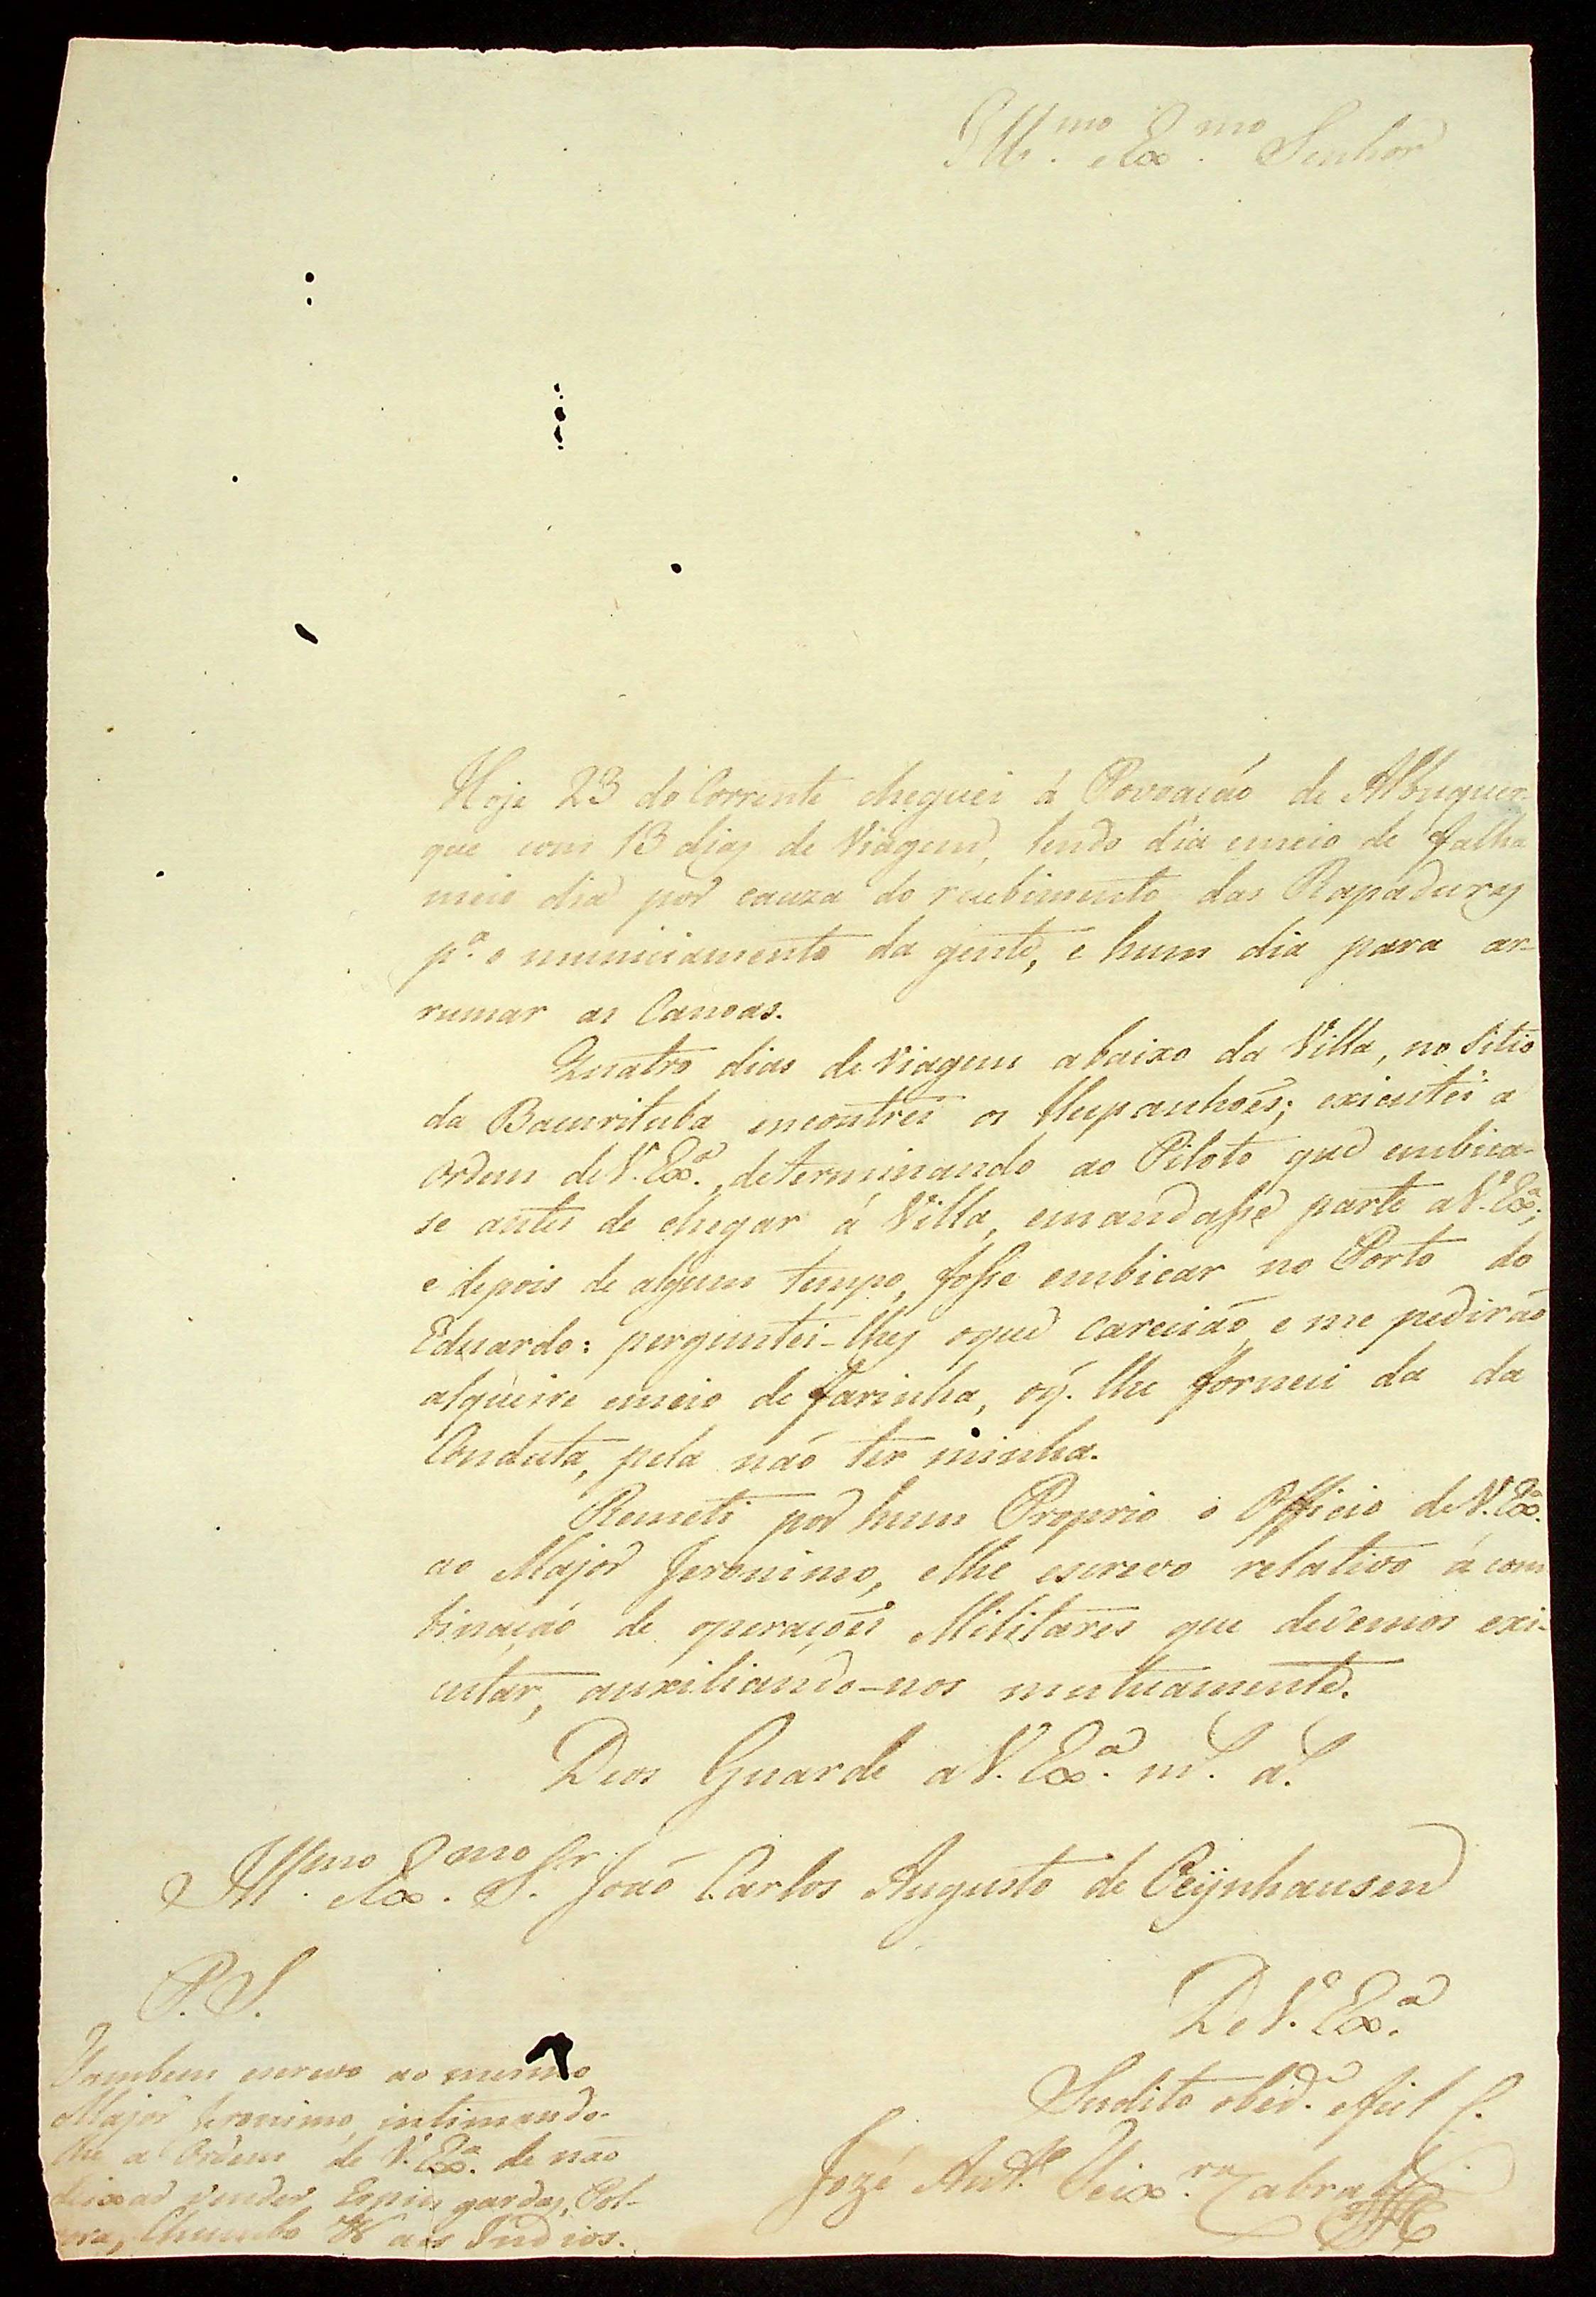 Ill.mo e Ex.mo Senhor
Hoje 23 do Corrente cheguei á Povoação de Albuquer-
que com 13 dias de Viagem, tendo dia emeio de falha
meio dia por cauza do recebimento das Rapaduras
p.a o municiamento da gente, e hum dia para ar-
rumar as Canoas.
Quatro dias de Viagem abaixo da Villa, no Sitio
da Bacurituba encontrei os Hespanhoes; exicutei a
ordem de V. Ex.a, determinando ao Piloto que embica-
se antes de chegar á Villa, emandasse parte a V. Ex.a;
e depois de algum tempo, fosse embicar no Porto do
Eduardo: perguntei-lhes oque carecião, e me pedirão
alqueire emeio de farinha, oq. lhe forneci da da
Conducta, pela não ter minha.
Remeti por hum Proprio o Officio de V. Ex.a
ao Major Jeronimo, elhe escrevo relativo á com
binação de operações Militares que devemos exi-
cutar, auxiliando-nos mutuamente.
Deos Guarde a V. Ex.a m.s a.s
Ill.mo e Ex.mo S.r João Carlos Augusto de Oeynhausen
P. S.
Tambem escrevo ao mesmo
Major Jeronimo, intimando-
lhe a Ordem de V. Ex.a de não
deixar vender Espingardas, Pol-
vora, Chumbo & aos Indios.
De V. Ex.a
Sudito obed.e e fiel C.
Jozé Ant.o Teix.ra Cabral